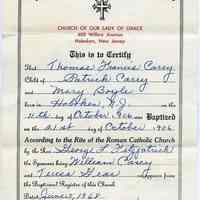 CHURCH OF OUR LADY OF GRACE
400 Willow Avenue
Hoboken, New Jersey
This is to Certify
That Thomas Francis Carey
Child of Patrick Carey
and Mary Boyle
born in Hoboken N.J. on the
11th day of October 1906 was Baptized
on the 21st day of October 1906
According to the Rite of the Roman Catholic Church
by the Rev. George F. Fitzpatrick
the Sponsors being William Casey
and Teresa as appears from
the Baptismal Register of this Church.
Dated 1968